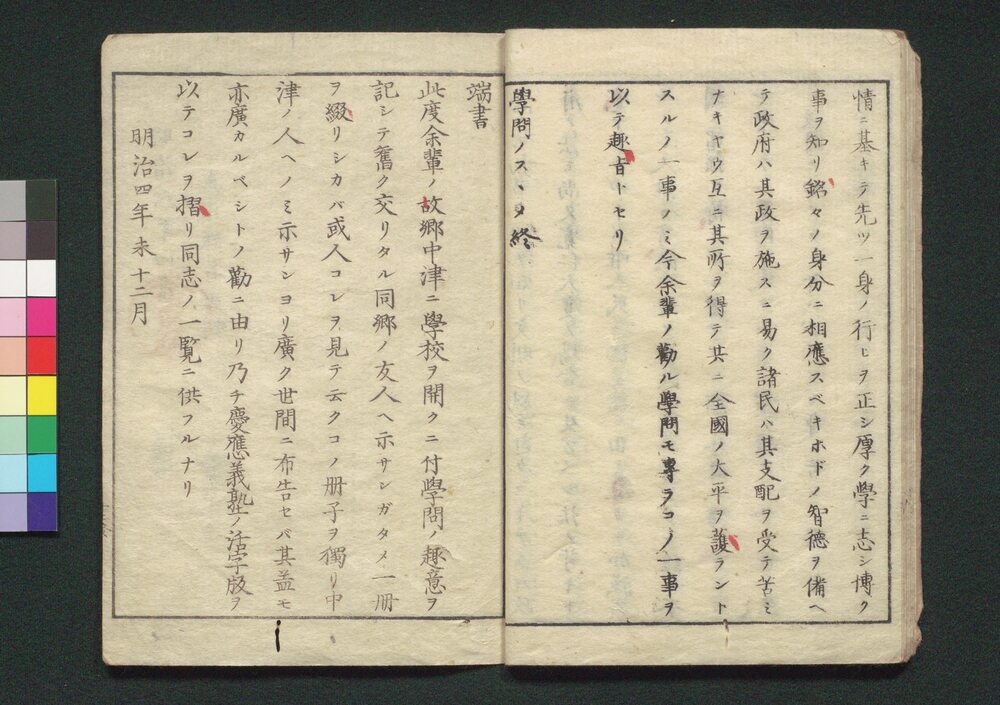 情ニ基キテ先ツ一身ノ行ヒヲ正シ厚ク學ニ志シ博ク
事ヲ知リ銘々ノ身分ニ相應スベキホドノ智德ヲ備ヘ
テ政府ハ其政ヲ施スニ易ク諸民ハ其支配ヲ受テ苦ミ
ナキヤウ互ニ其所ヲ得テ共ニ全國ノ大平ヲ護ラント
スルノ一事ノミ今余輩ノ勸ル學問モ專ラコノ一事ヲ
以テ趣旨トセリ
學問ノスヽメ終
端書
此度余輩ノ故鄕中津ニ學校ヲ開クニ付學問ノ趣意ヲ
記シテ舊ク交リタル同鄕ノ友人ヘ示サンガタメ一册
ヲ綴リシカバ或人コレヲ見テ云クコノ册子ヲ獨リ中
津ノ人ヘノミ示サンヨリ廣ク世間ニ布告セバ其益モ
亦廣カルベシトノ勸ニ由リ乃チ慶應義塾ノ活字版ヲ
以テコレヲ摺リ同志ノ一覧ニ供フルナリ
明治四年未十二月